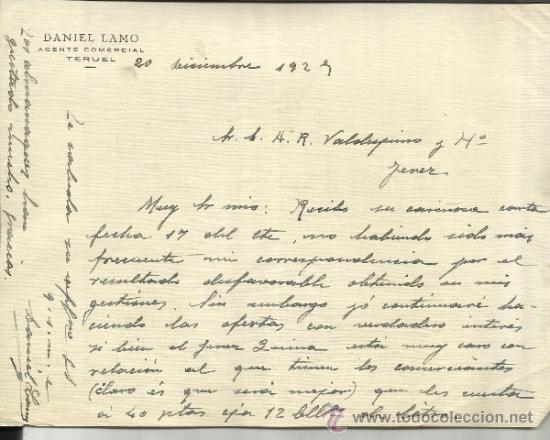 DANIEL LAMO
AGENTE COMERCIAL
TERUEL
20 diciembre 1929
Sr. D. A. R. Valdespino y Hº
Jerez
Muy Sr mio: Recibo su cariñosa carta
fecha 17 del cte, no habiendo sido más
frecuente mi correspondencia por el
resultado desfavorable obtenido en mis
gestiones. Sin embargo yó continuaré ha-
ciendo las ofertas con verdadero interés
si bien el Jerez Quina está muy caro con
relación al que tienen los comerciantes
(claro és que será mejor) que les cuesta
a 40 ptas cja 12 blls
Le saluda su affmo S.S.
q. e. s. m.
Daniel Lamo
Los almanaques han
gustado mucho, gracias.
todocoleccion